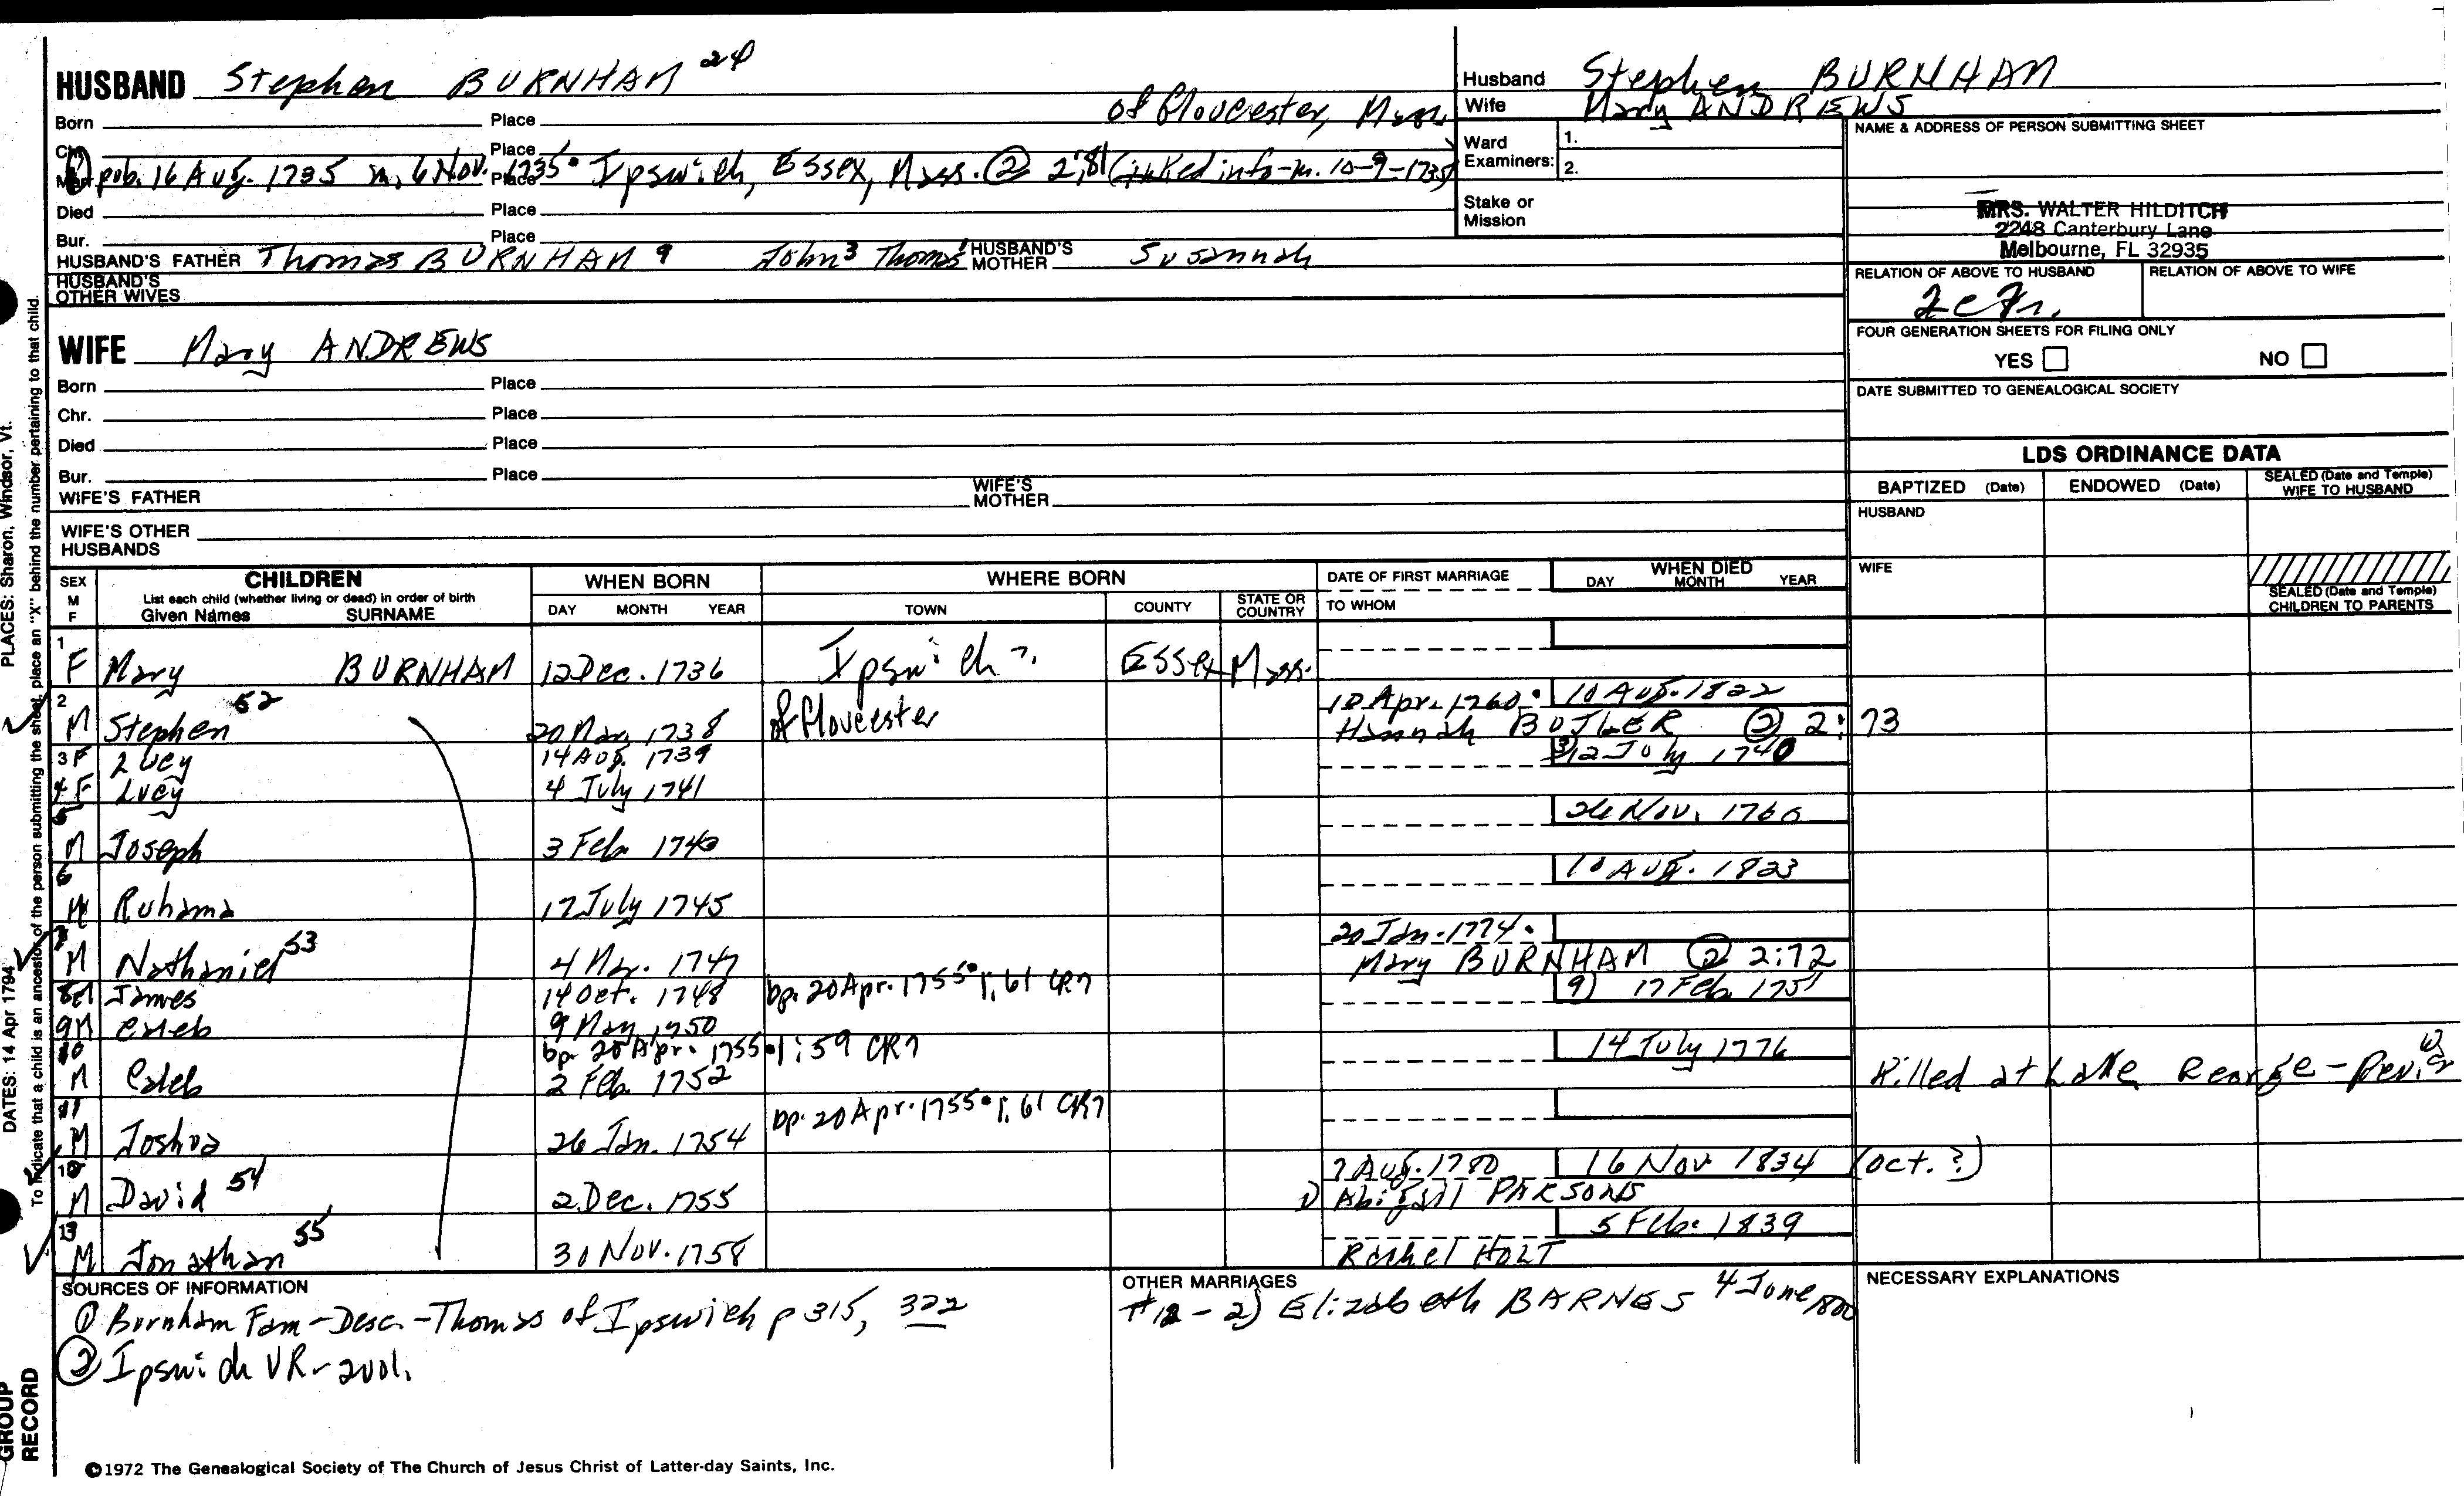 HUSBAND Stephen BURNHAM 24
of Gloucester, Mass.
Born Place
Chr. Place
① pub. 16 Aug. 1735 m. 6 Nov. 1735 • Ipswich, Essex, Mass. ② 2:81 (inked info-m. 10-9-1735)
Marr. Place
Died Place
Bur. Place
HUSBAND'S FATHER Thomas BURNHAM 9 John3 Thomas1 HUSBAND'S MOTHER Susannah
HUSBAND'S OTHER WIVES
Husband Stephen BURNHAM
Wife Mary ANDREWS
Ward Examiners: 1. 2.
Stake or Mission
NAME & ADDRESS OF PERSON SUBMITTING SHEET
MRS. WALTER HILDITCH
2248 Canterbury Lane
Melbourne, FL 32935
RELATION OF ABOVE TO HUSBAND RELATION OF ABOVE TO WIFE
FOUR GENERATION SHEETS FOR FILING ONLY
YES NO
DATE SUBMITTED TO GENEALOGICAL SOCIETY
WIFE Mary ANDREWS
Born Place
Chr. Place
Died Place
Bur. Place
WIFE'S FATHER WIFE'S MOTHER
WIFE'S OTHER HUSBANDS
LDS ORDINANCE DATA
BAPTIZED (Date) ENDOWED (Date) SEALED (Date and Temple) WIFE TO HUSBAND
HUSBAND
WIFE
SEALED (Date and Temple) CHILDREN TO PARENTS
SEX M F
CHILDREN
List each child (whether living or dead) in order of birth
Given Names SURNAME
WHEN BORN
DAY MONTH YEAR
WHERE BORN
TOWN COUNTY STATE OR COUNTRY
DATE OF FIRST MARRIAGE
TO WHOM
WHEN DIED
DAY MONTH YEAR
1 F Mary BURNHAM 12 Dec. 1736 Ipswich ?. Essex Mass.
18 Apr. 1760 • 10 Aug. 1822
2 M Stephen 52 20 Mar. 1738 of Gloucester Hannah BUTLER ② 2:73
3 F Lucy 14 Aug. 1739 3) 12 July 1740
4 F Lucy 4 July 1741
26 Nov. 1760
5 M Joseph 3 Feb. 1743
10 Aug. 1823
6 Ruhama 17 July 1745
20 Jan. 1774 •
7 M Nathaniel 53 4 Mar. 1747 Mary BURNHAM ② 2:72
8 M James 14 Oct. 1748 bp. 20 Apr. 1755 • 1:61 CR7 9) 17 Feb. 1751
9 M Caleb 9 May 1750
bp. 20 Apr. 1755 • 1:59 CR7 14 July 1776
10 M Caleb 2 Feb. 1752 Killed at Lake George - Rev. War
11 M Joshua 26 Jan. 1754 bp. 20 Apr. 1755 • 1:61 CR7
7 Aug. 1780 16 Nov. 1834 (Oct. ?)
12 M David 54 2 Dec. 1755 1) Abigail PARSONS
5 Feb. 1839
13 M Jonathan 55 30 Nov. 1758 Rachel HOLT
SOURCES OF INFORMATION
① Burnham Fam-Desc.-Thomas of Ipswich p 315, 322
② Ipswich VR-2vol.
OTHER MARRIAGES
#12 - 2) Elizabeth BARNES 4 June 1800
NECESSARY EXPLANATIONS
©1972 The Genealogical Society of The Church of Jesus Christ of Latter-day Saints, Inc.
PLACES: Sharon, Windsor, Vt.
DATES: 14 Apr 1794
To indicate that a child is an ancestor of the person submitting the sheet, place an "X" behind the number pertaining to that child.
GROUP RECORD